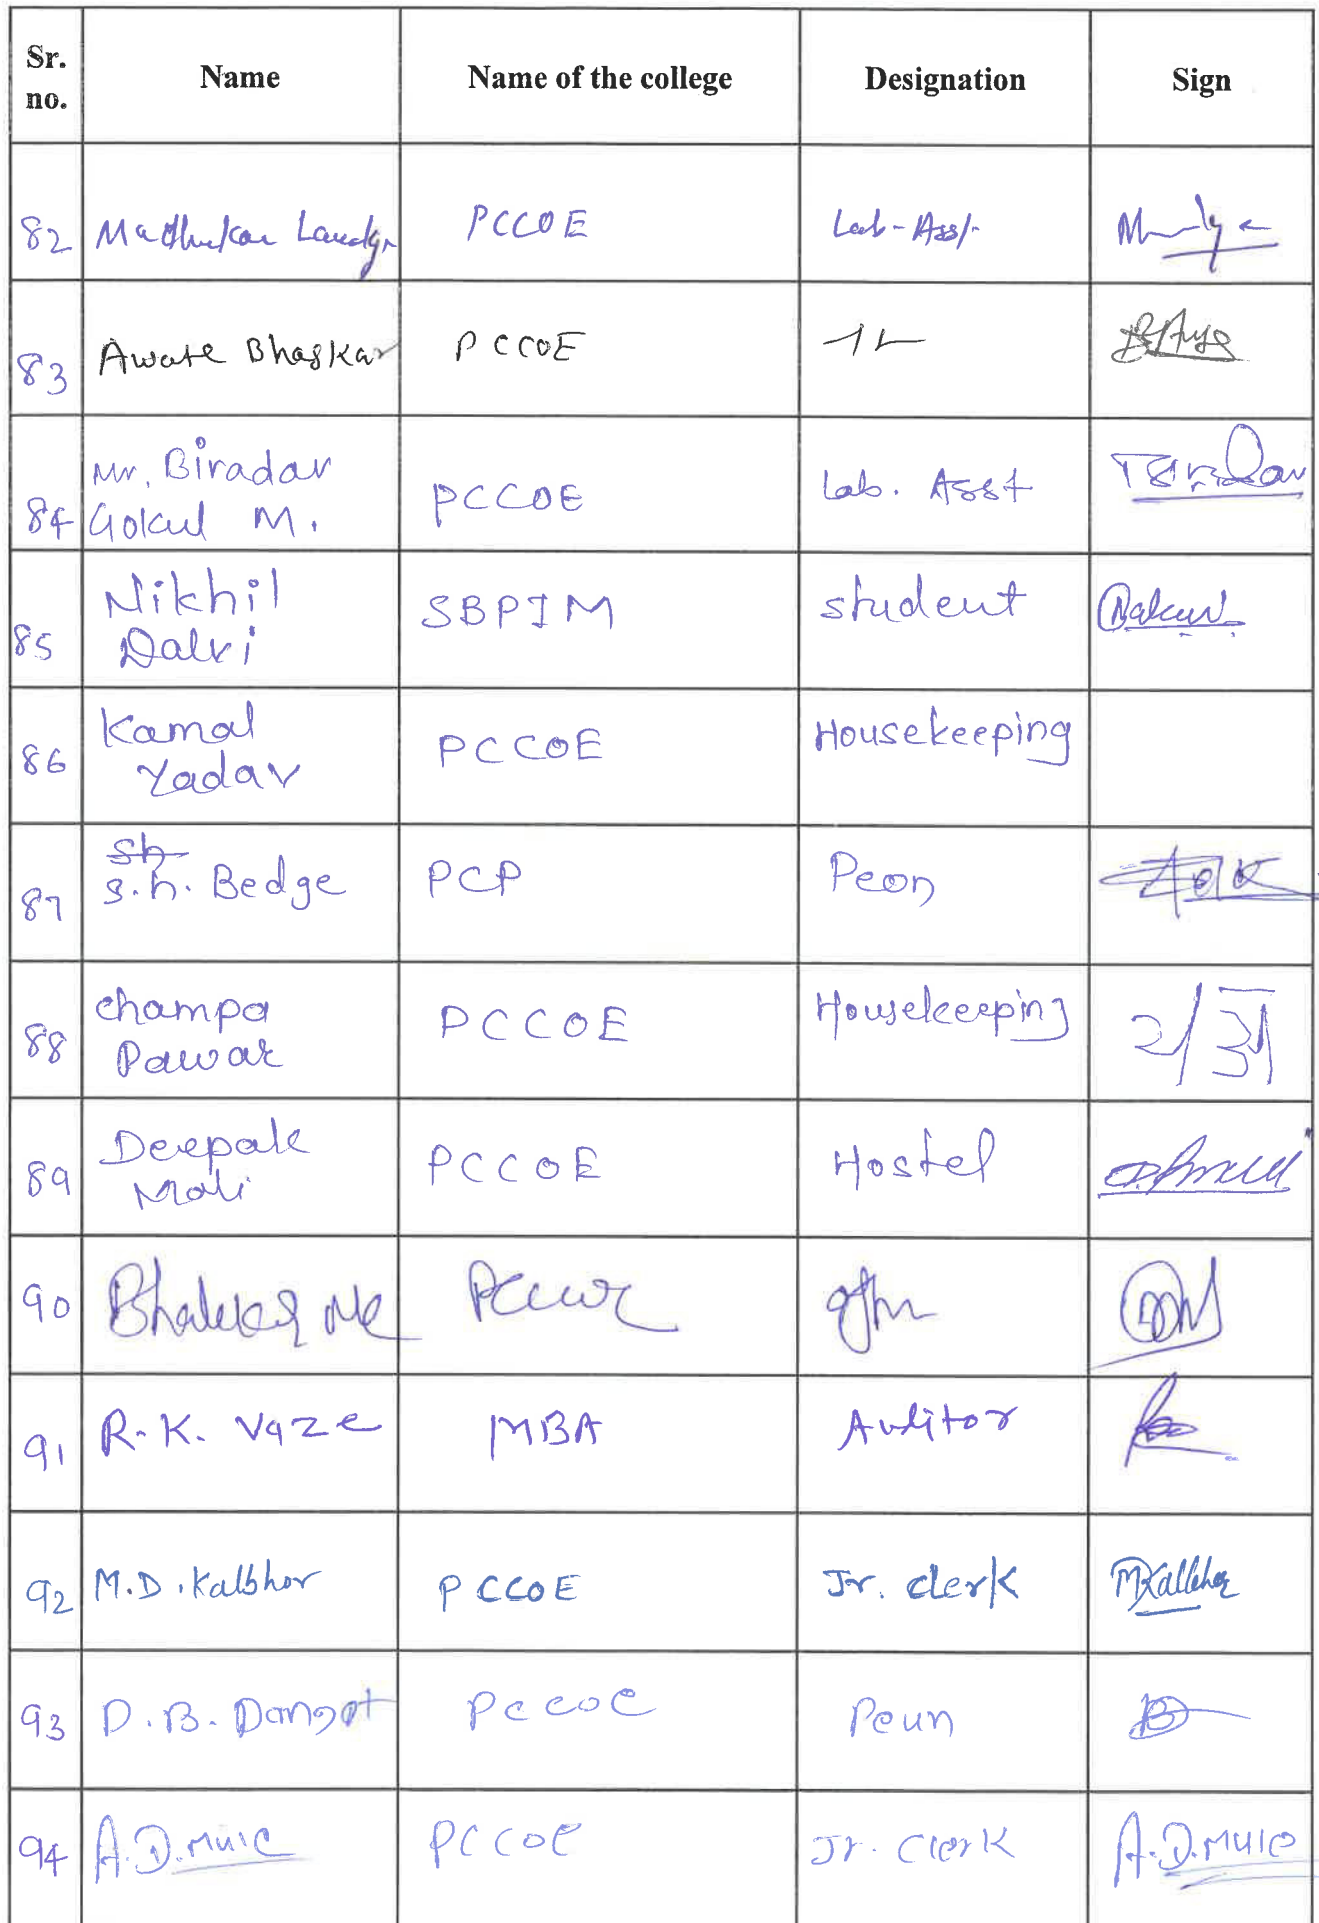 Sr. no. Name Name of the college Designation Sign
82 Madhukar Landge PCCOE Lab-Asst.
83 Awate Bhaskar PCCOE -11-
84 Mr. Biradar Gokul M. PCCOE Lab. Asst
85 Nikhil Dalvi SBPIM student
86 Kamal Yadav PCCOE Housekeeping
87 S.h. Bedge PCP Peon
88 champa Pawar PCCOE Housekeeping
89 Deepak Mali PCCOE Hostel
90
91 R.K. Vaze MBA Auditor
92 M.D. Kalbhor PCCOE Jr. clerk MKalbhor
93 D.B. Dangat PCCOE Peun
94 A.D. Mule PCCOE Jr. Clerk A.D. Mule